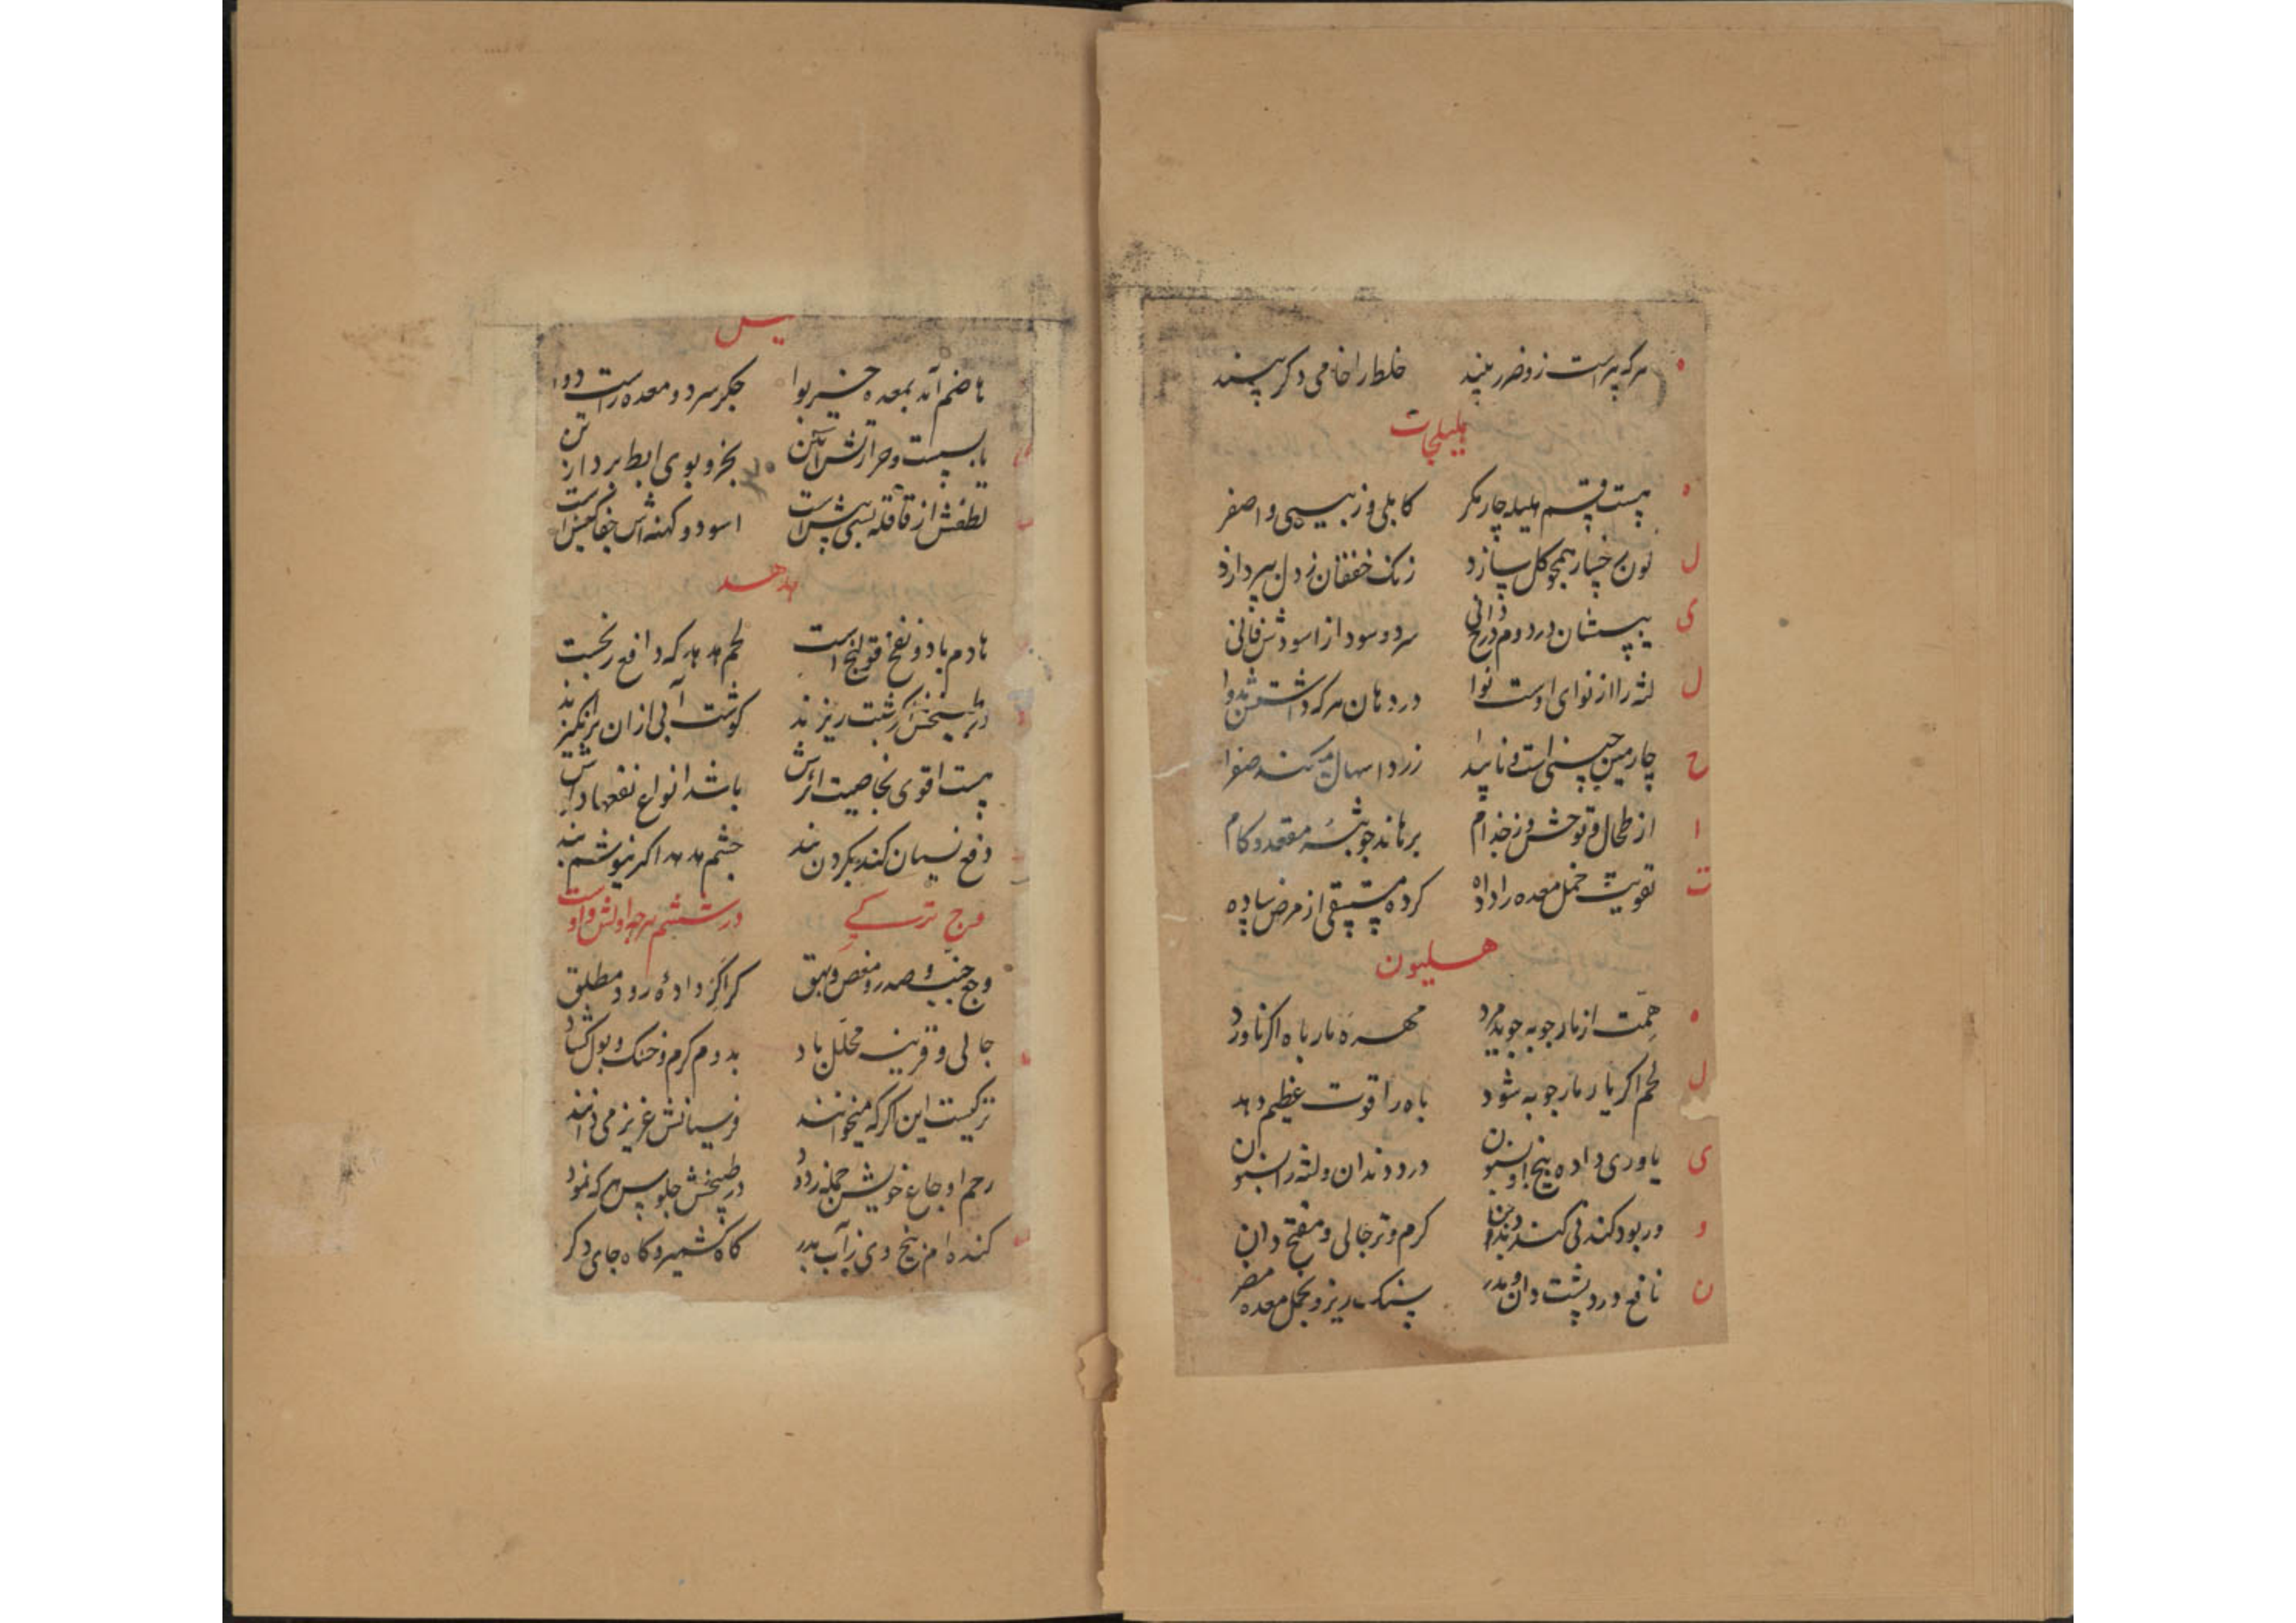 هرکه پیراست زو ضرر بیند خلط را خامی دگر بپسندد
هلیلجات
ه هست قسم هلیله چار مکر کابلی و زبیبی و اصفر
ل لون رخسار همچو کل سازد زنک خفقان ز دل بپردازد
ی یبسشان در دوم درج دانی سرد و سودا از اسودش فانی
ل لثه را از نوای اوست نوا در دهان هرکه داشتش بدوا
ح چارمین چینی است و ناپیدا زرد اسهال میکند صفرا
ا از طحال و توحش و ز جذام برهاند جوشه مقعد و کام
ت تقویت خمل معده را داده کرده مستسقی از مرض ساده
هلیون
ه همت از مارجوبه جوید مرد مهره مار باه اکر ناورد
ل لحم اکر یار مارجوبه شود باه را قوت عظیم دهد
ی یاوری داده بیخ او بسنون درد دندان و لثه را بسنون
و ور بود کند نی کند دندان کرم و تر جالی و مفتح دان
ن نافع درد پشت دان و مدر سنک ریز و بخمل معده مضر
هاضم آمد بمعده خیربوا جکر سرد و معده راست دوا
یابسست و حرارتش بخر و بوی ابط بردارش
لطفش از قاقله بسی بیش است اسود و کهنه اش
هدهد
هادم باد و نفخ و قولنج است لحم هدهد که دافع رنجست
در طبیخش کر شبت ریزند کوشت آبی ازان برانکیزند
هست اقوی بخاصیت اثرش باشد انواع نفعها
دفع نسیان کند بکردن بند چشم هدهد اکر
وج ترکی در ششم هرچه اولش واو است
وجع جنب و صدر و مغص و بهق کر اکر داده رود مطلق
جالی و محلل باد بدوم کرم و خشک و بول کشاد
ترکیست این اکر که میخوانند می دانند
رحم اوجاع خویش جمله زدود در طبیخش جلوس هرکه نمود
کنده ام بیخ وی ز آب بدر کاه کشمیر و کاه جای دکر